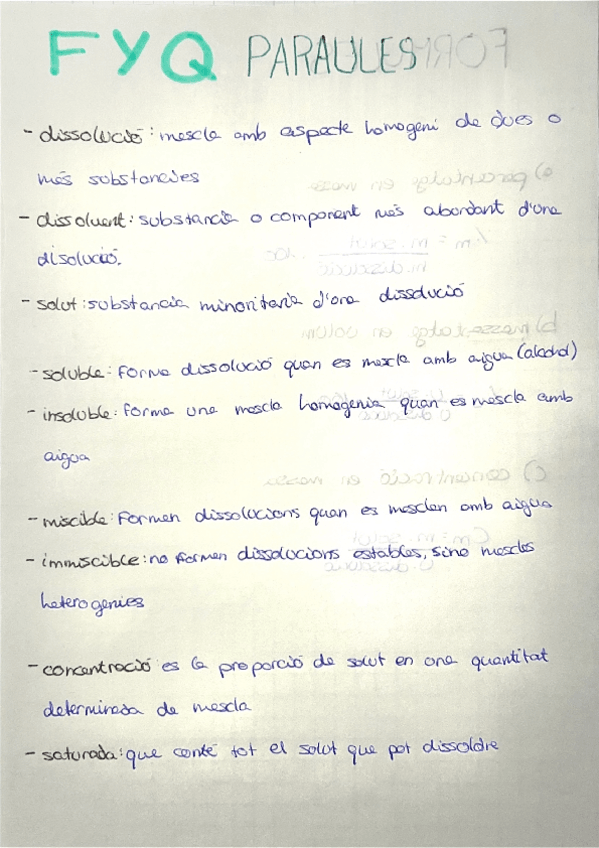 FYQ PARAULES
- dissolució: mescla amb aspecte homogeni de dues o
més substancies
- dissoluent: substancia o component més abondant d'una
disolució.
- solut: substancia minoritaria d'una dissolució
- soluble: forma dissolució quan es mescla amb aigua (alcohol)
- insoluble: forma una mescla homogenia quan es mescla amb
aigua
- miscible: Formen dissolucions quan es mesclen amb aigua
- immiscible: no formen dissolucions estables, sino mescles
heterogenies
- concentració es la proporció de solut en una quantitat
determinada de mescla
- saturada: que conté tot el solut que pot dissoldre